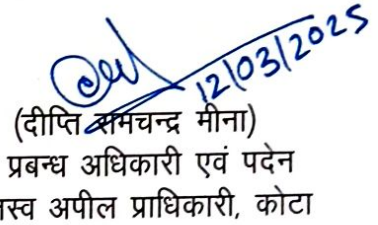 12/03/2025
(दीप्ति रामचन्द्र मीना)
प्रबन्ध अधिकारी एवं पदेन
अपील प्राधिकारी, कोटा